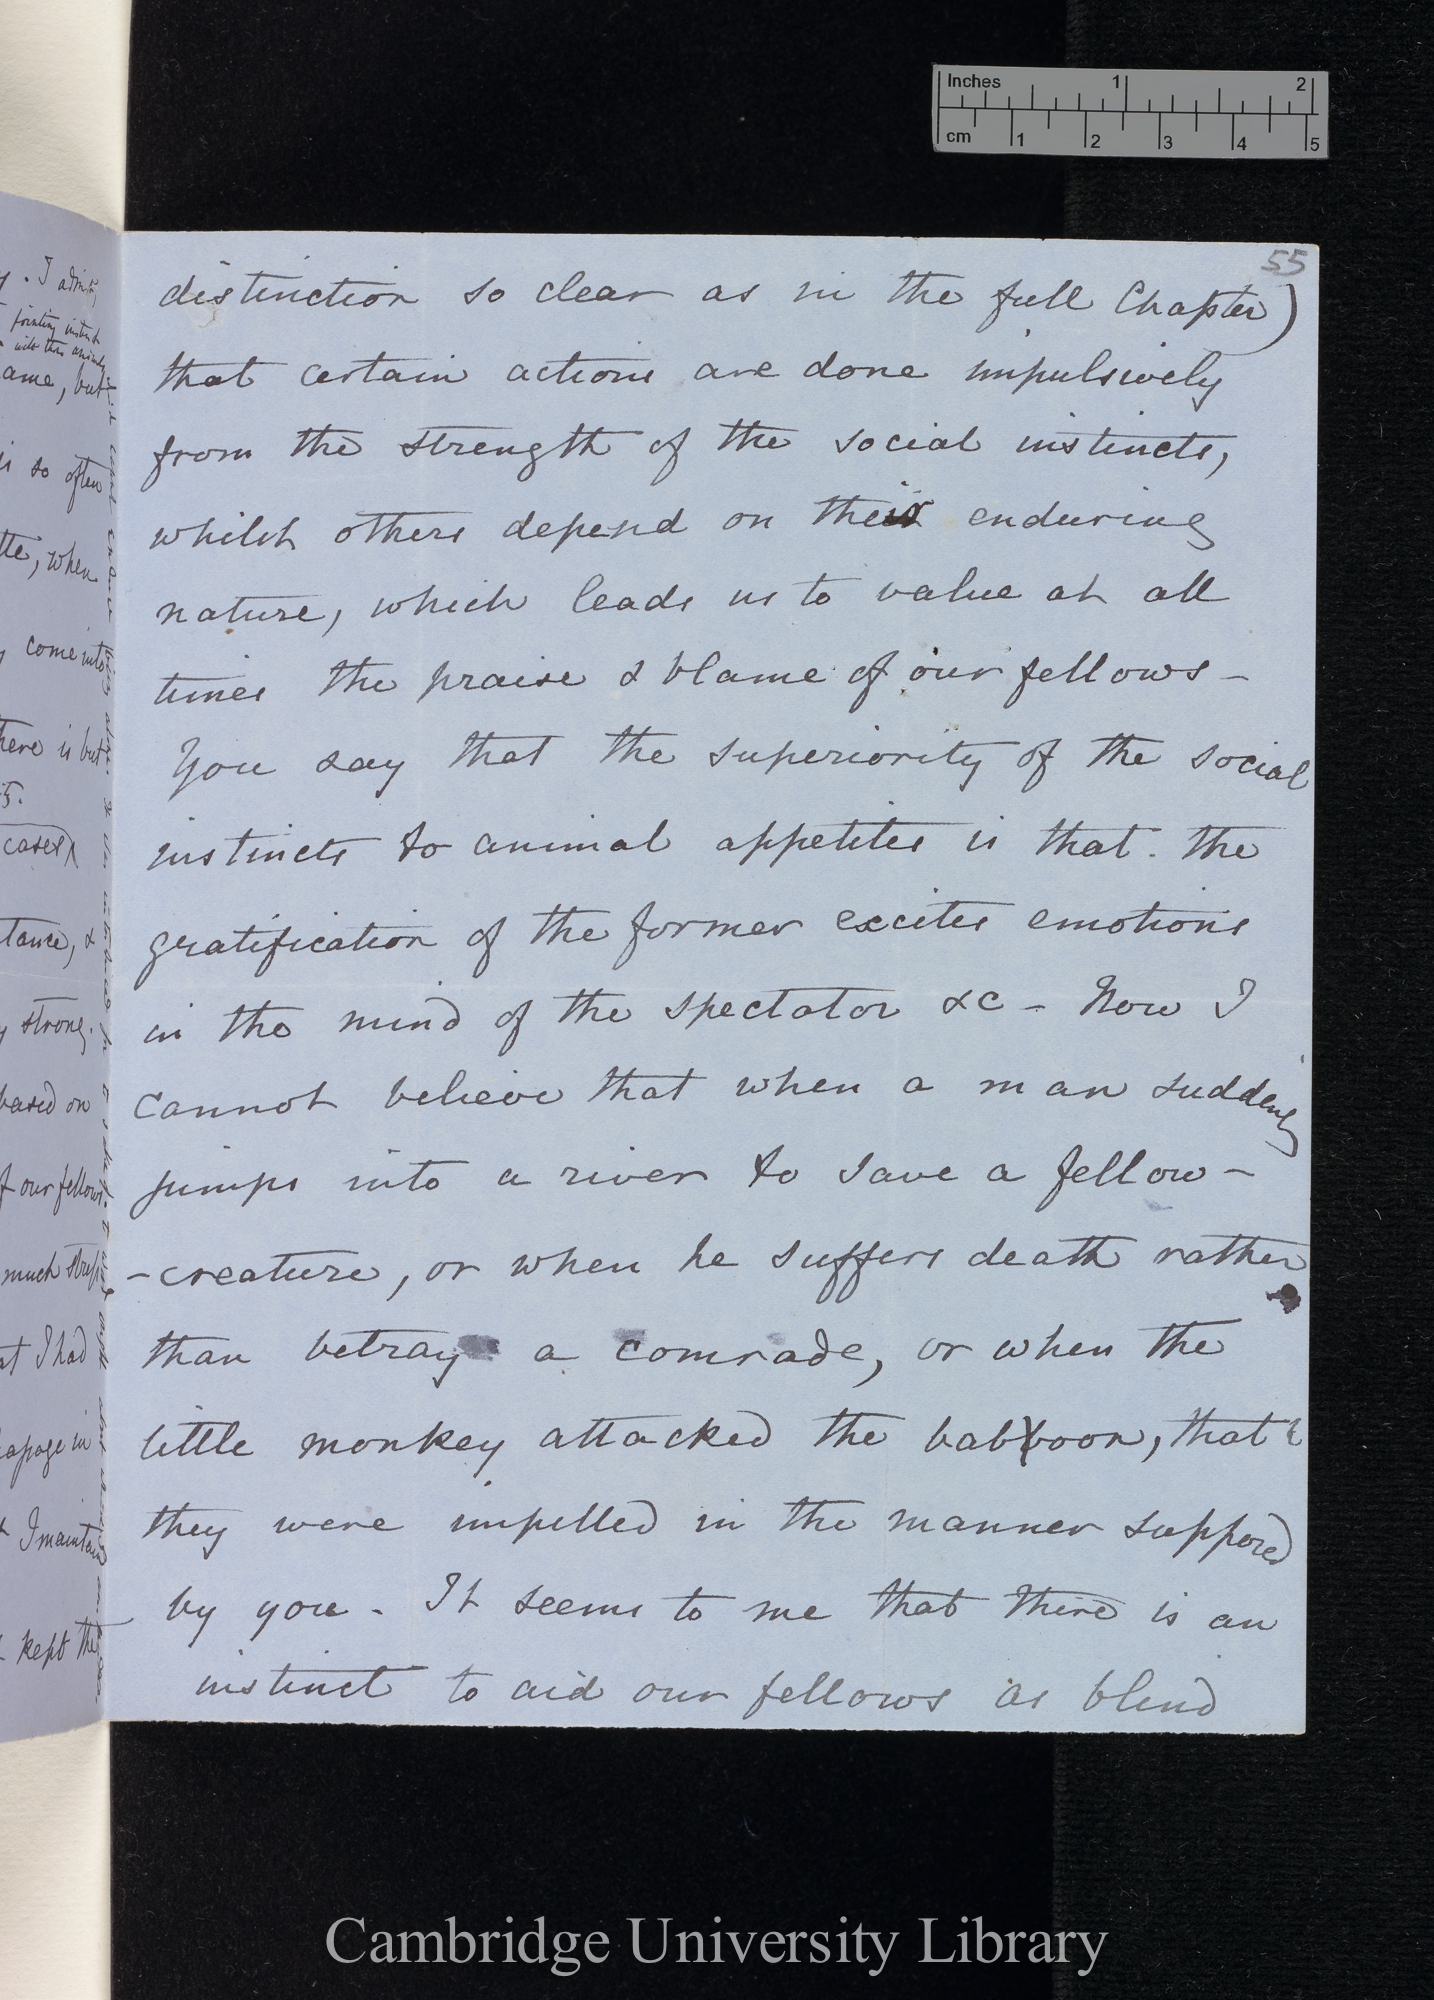 Inches 1 2
cm 1 2 3 4 5
55
distinction so clear as in the full Chapter)
that certain actions are done impulsively
from the strength of the social instincts,
whilst others depend on their enduring
nature, which leads us to value at all
times the praise & blame of our fellows –
You say that the superiority of the social
instincts to animal appetites is that the
gratification of the former excites emotions
in the mind of the spectator &c – Now I
cannot believe that when a man suddenly
jumps into a river to save a fellow –
– creature, or when he suffers death rather
than betray a comrade, or when the
little monkey attacked the babboon, that
they were impelled in the manner supposed
by you – It seems to me that there is an
instinct to aid our fellows as blind
. I admit,
pointing instinct
ame, but
is so often
tte, when
come into
here is but
cases
tance, &
strong.
based on
f our fellows
much
I had
I maintain
kept the
Cambridge University Library